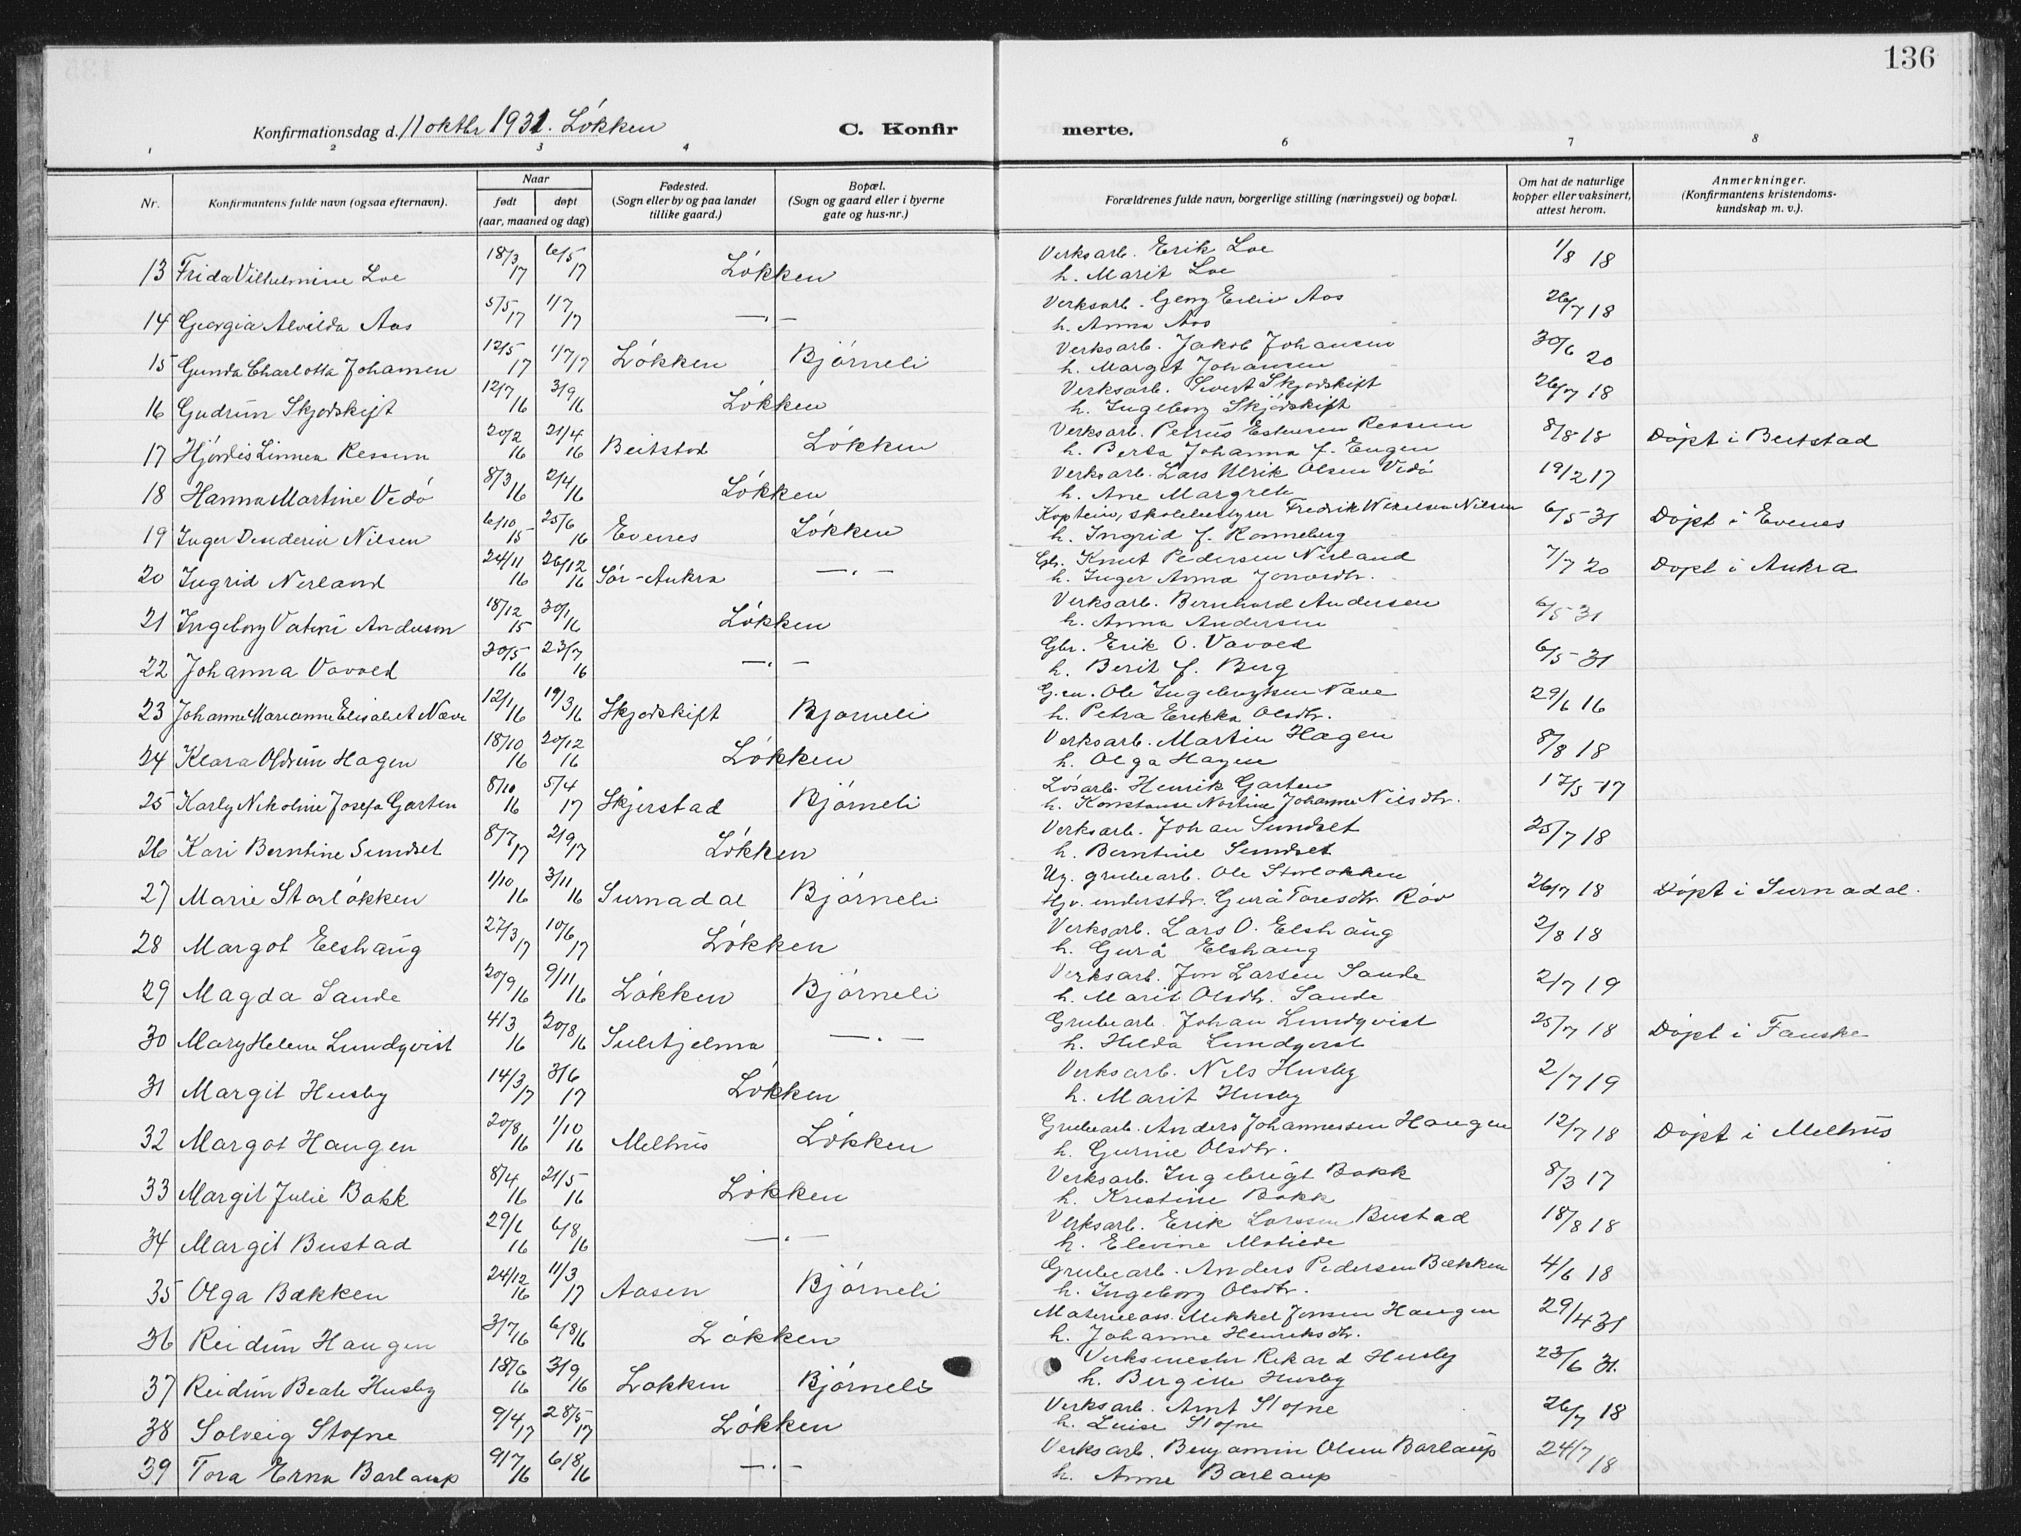 136
Konfirmationsdag d. 11 oktbr 1931. Løkken
C. Konfir merte.
1 2 3 4 6 7 8
Nr.
Konfirmantens fulde navn (ogsaa efternavn).
Naar
født døpt
(aar, maaned og dag)
Fødested.
(Sogn eller by og paa landet
tillike gaard.)
Bopæl.
(Sogn og gaard eller i byerne
gate og hus-nr.)
Forældrenes fulde navn, borgerlige stilling (næringsvei) og bopæl.
Om hat de naturlige
kopper eller vaksinert,
attest herom.
Anmerkninger.
(Konfirmantens kristendoms-
kundskap m. v.).
13 Frida Vilhelmine Loe 18/3 17 6/5 17 Løkken Verksarb. Erik Loe 1/8 18
h. Marit Loe
14 Georgia Alvilda Aas 5/5 17 1/7 17 —·— Verksarb. Georg Aas 26/7 18
h. Anna Aas
15 Gunda Charlotta Johansen 12/5 17 1/7 17 Løkken Bjørneli Verksarb. Jakob Johansen 30/6 20
h. Margit Johansen
16 Gudrun Skjødskift 12/7 16 3/9 16 Løkken Verksarb. Sivert Skjødskift 26/7 18
h. Ingeborg Skjødskift
17 Hjørdis Linnea Ressem 20/2 16 21/4 16 Beitstad Løkken Verksarb. Petrus Estensen Ressem 8/8 18 Døpt i Beitstad
h. Berta Johanna f. Eugen
18 Hanna Martine Vedø 8/3 16 2/4 16 Løkken Verksarb. Lars Ulrik Olsen Vedø 19/2 17
h. Ane Margrete
19 Inger Nilsen 6/10 15 25/6 16 Evenes Løkken Kaptein, skolebestyrer Fredrik Nilsen 6/5 31 Døpt i Evenes
h. Ingrid f. Ronneberg
20 Ingrid Nerland 24/11 16 26/12 16 Sør-Aukra —·— Gbr. Knut Pedersen Nerland 7/7 20 Døpt i Aukra
h. Inger Anna Jonasdtr.
21 Ingeborg Andersen 18/12 15 30/1 16 Løkken Verksarb. Bernhard Andersen 6/5 31
h. Anna Andersen
22 Johanna Vavold 20/5 16 23/7 16 —·— Gbr. Erik O. Vavold 6/5 31
h. Berit f. Berg
23 Johanne Marianne Elisabet Næve 12/1 16 19/3 16 Skjødskift Bjørneli G.en. Ole Ingebrigtsen Næve 29/6 16
h. Petra Erikka Olsdtr.
24 Klara Oldrun Hagen 18/10 16 20/12 16 Løkken Verksarb. Martin Hagen 8/8 18
h. Olga Hagen
25 Karly Nikoline Josefa Garten 8/10 16 5/4 17 Skjerstad Bjørneli Løsarb. Henrik Garten 17/5 17
h. Konstanse Nortine Johanne Nilsdtr.
26 Kari Berntine Sundset 8/7 17 2/9 17 Løkken Verksarb. Johan Sundset 25/7 18
h. Berntine Sundset
27 Marie Storløkken 1/10 16 3/11 16 Surnadal Bjørneli Ug. grubearb. Ole Storløkken 26/7 18 Døpt i Surnadal.
Hjv. understdr. Gurå Toresdtr. Røv
28 Margot Elshaug 27/3 17 10/6 17 Løkken Verksarb. Lars O. Elshaug 2/8 18
h. Gurå Elshaug
29 Magda Sande 20/9 16 9/11 16 Løkken Bjørneli Verksarb. Jon Larsen Sande 2/7 19
h. Marit Olsdtr. Sande
30 Mary Helene Lundqvist 4/3 16 20/8 16 Sulitjelma —·— Grubearb. Johan Lundqvist 25/7 18 Døpt i Fauske
h. Hilda Lundqvist
31 Margit Husby 14/3 17 3/6 17 Løkken Verksarb. Nils Husby 2/7 19
h. Marit Husby
32 Margot Haugen 20/8 16 1/10 16 Melhus Løkken Grubearb. Anders Johannessen Haugen 12/7 18 Døpt i Melhus
h. Gurine Olsdtr.
33 Margit Julie Bakk 8/4 16 21/5 16 Løkken Verksarb. Ingebrigt Bakk 8/3 17
h. Kristine Bakk
34 Margit Bustad 29/1 16 6/8 16 —·— Verksarb. Erik Larssen Bustad 18/8 18
h. Elevine Matilde
35 Olga Bækken 24/12 16 11/3 17 Aasen Bjørneli Grubearb. Anders Pedersen Bækken 4/6 18
h. Ingeborg Olsdtr.
36 Reidun Haugen 3/7 16 6/8 16 Løkken Materialass. Mikkel Jonsen Haugen 29/4 31
h. Johanne Henriksdtr.
37 Reidun Beate Husby 18/6 16 3/9 16 Løkken Bjørneli Verksmester Rikard Husby 23/6 31.
h. Bergitte Husby
38 Solveig Stofne 9/4 17 28/5 17 Løkken Verksarb. Arnt Stofne 26/7 18
h. Luise Stofne
39 Tora Erna Barlaup 9/7 16 6/8 16 —·— Verksarb. Benjamin Olsen Barlaup 24/7 18
h. Anne Barlaup